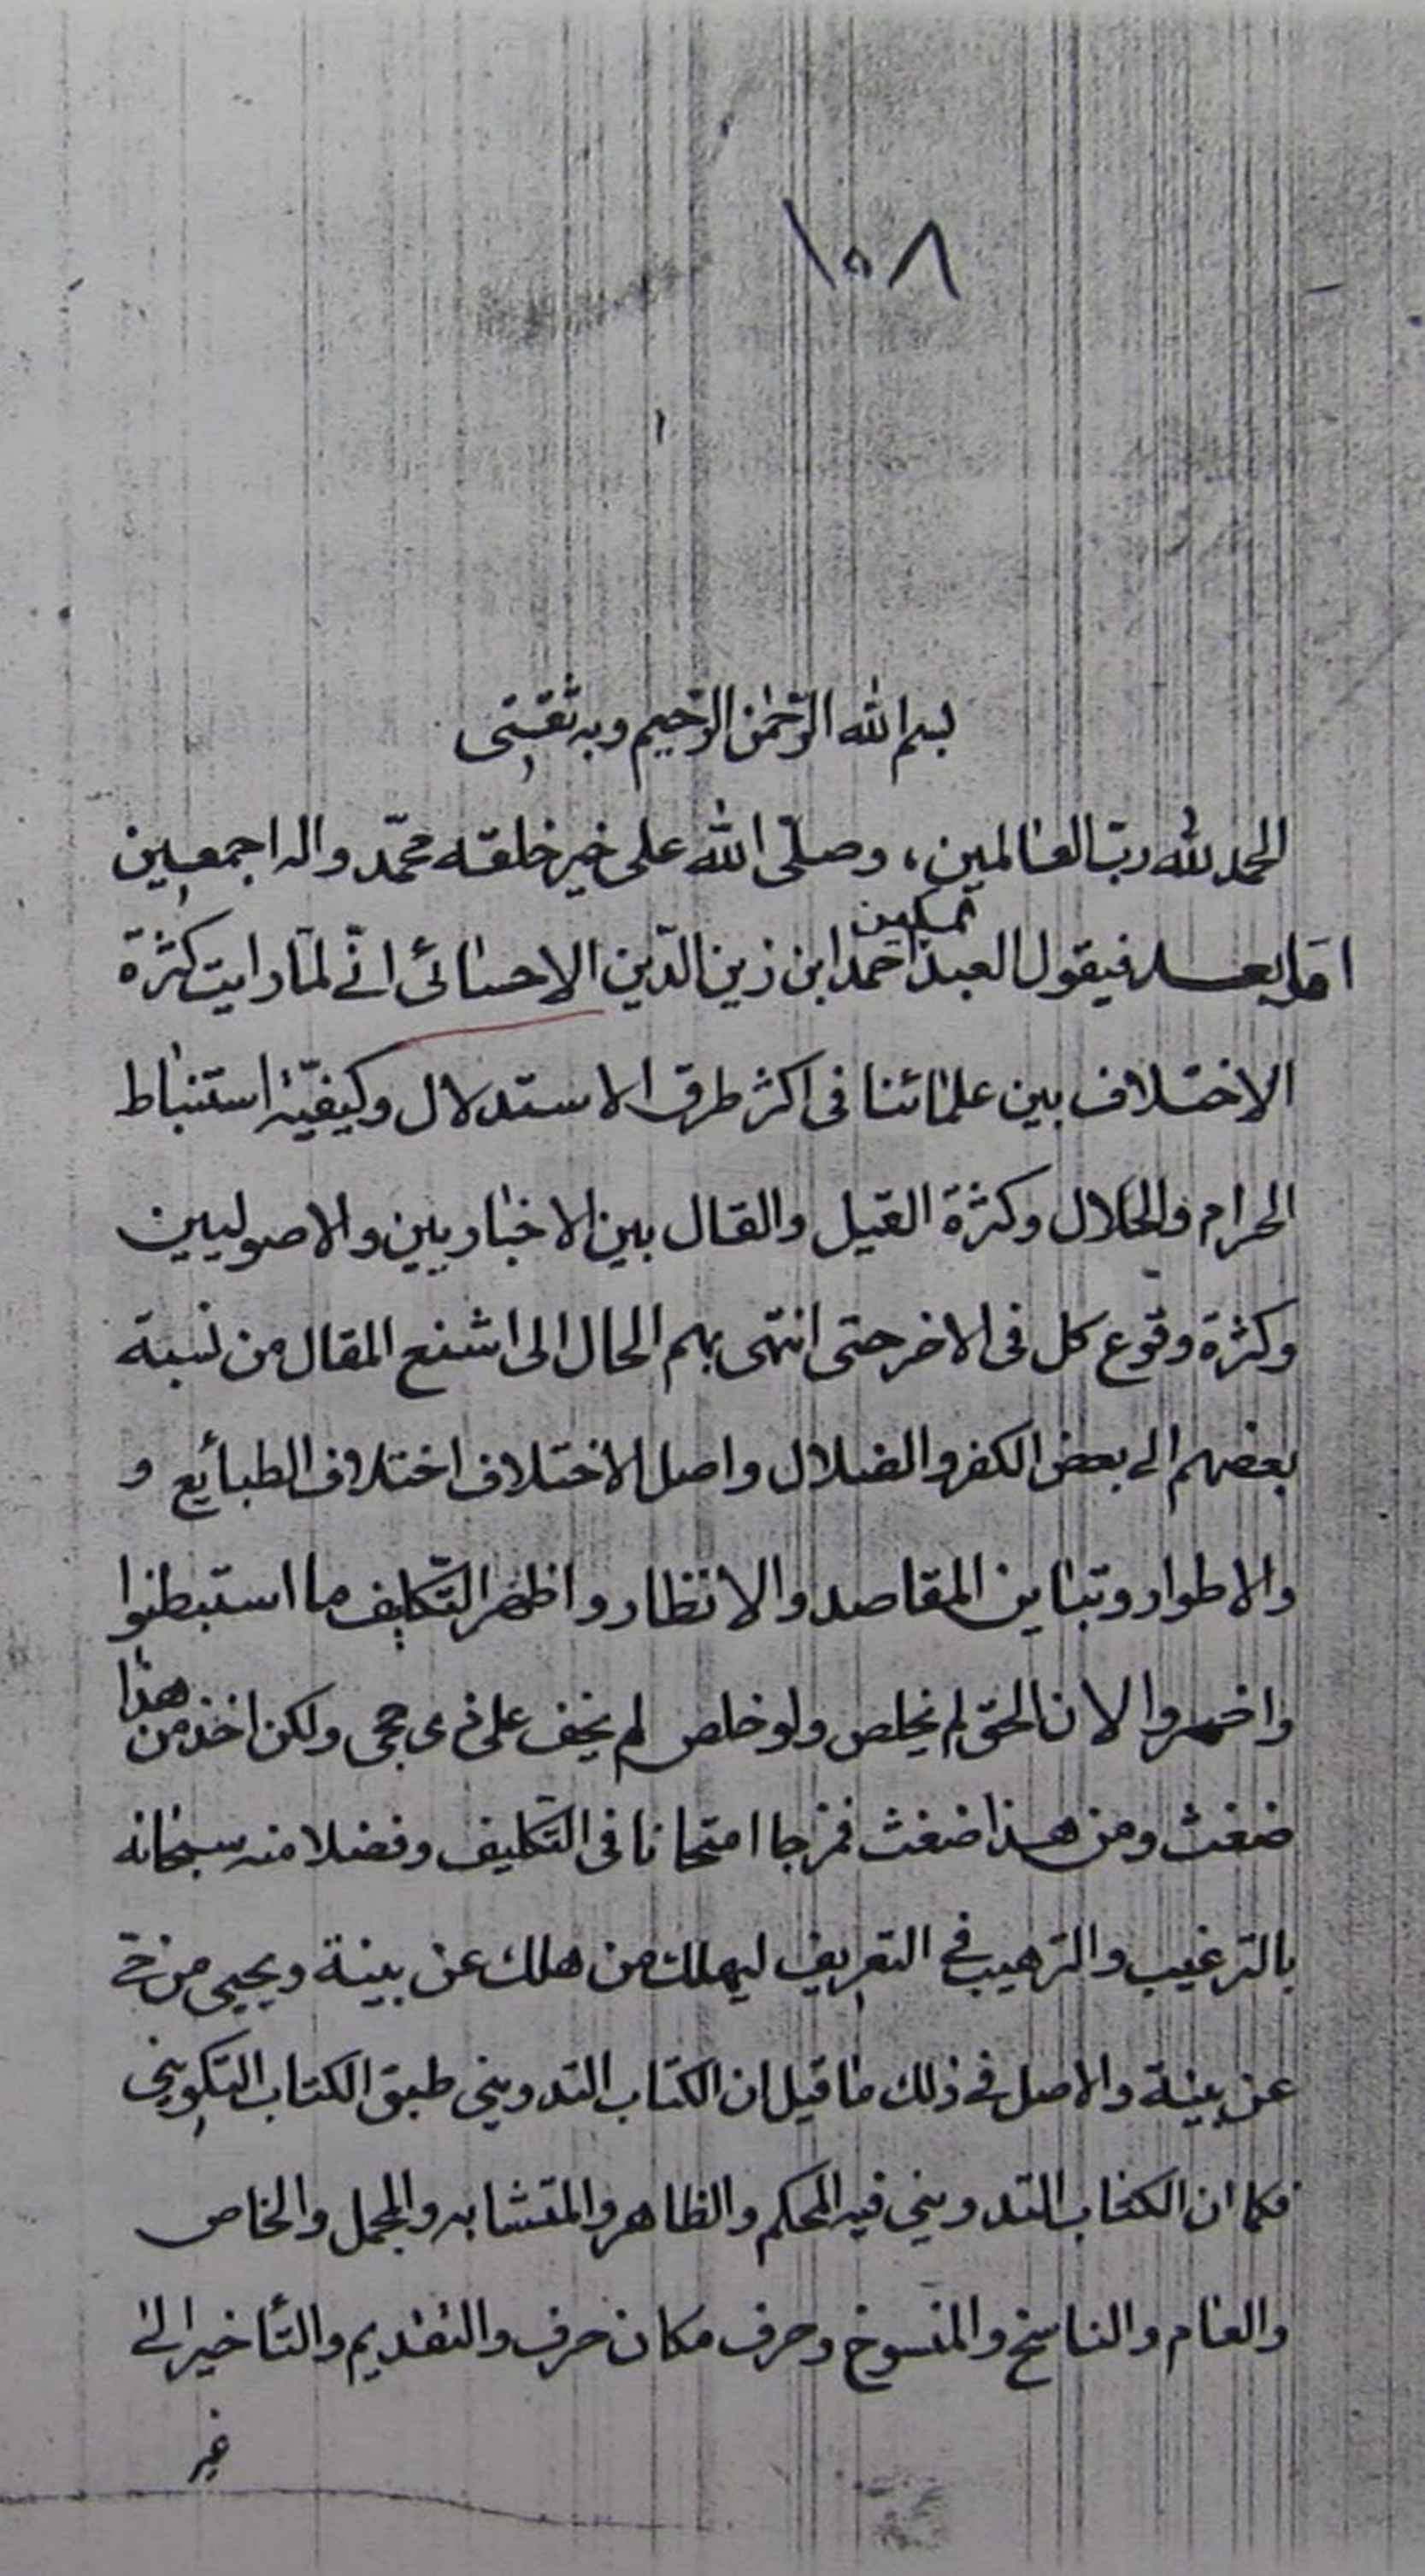 ١٠٨
١
بسم الله الرّحمٰن الرّحيم وبه ثقتى
الحمد لله ربّ العٰالمين، وصلّى الله على خير خلقه محمّد واله اجمعين
امّا بعد فيقول العبد المسكين احمد ابن زين الدّين الاحسٰائى انّى لمّا رايت كثرة
الاختلاف بين علمٰائنا فى اكثر طرق الاستدلال وكيفيّة استنباط
الحرام والحلال وكثرة القيل والقال بين الاخبٰاريين والاصوليين
وكثرة وقوع كل فى الاخر حتى انتهى بهم الحال الى اشنع المقال من نسبة
بعضهم الى بعض الكفر والضلال واصل الاختلاف اختلاف الطبائع و
والاطوار وتباين المقاصد والانظار واظهر التّكليف ما استبطنوا
واضمروا الا ان الحق لم يخلص ولو خلص لم يخف على ذى حجى ولكن اخذ من هذا
ضغث ومن هذا ضغث فمزجا امتحانا فى التّكليف وفضلا منه سبحٰانه
بالترغيب والترهيب فى التعريف ليهلك من هلك عن بينة ويحيى من حى
عن بينة والاصل فى ذلك مٰا قيل ان الكتاب التدوينى طبق الكتاب التكوينى
فكما ان الكتاب التدوينى فيه المحكم والظاهر والمتشابه والمجمل والخاص
والعٰام والناسخ والمنسوخ وحرف مكان حرف والتقديم والتأخير الى
غير